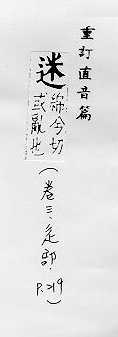 重訂直音篇
迷
弥今切
或亂也
(卷三.辵部.P.219